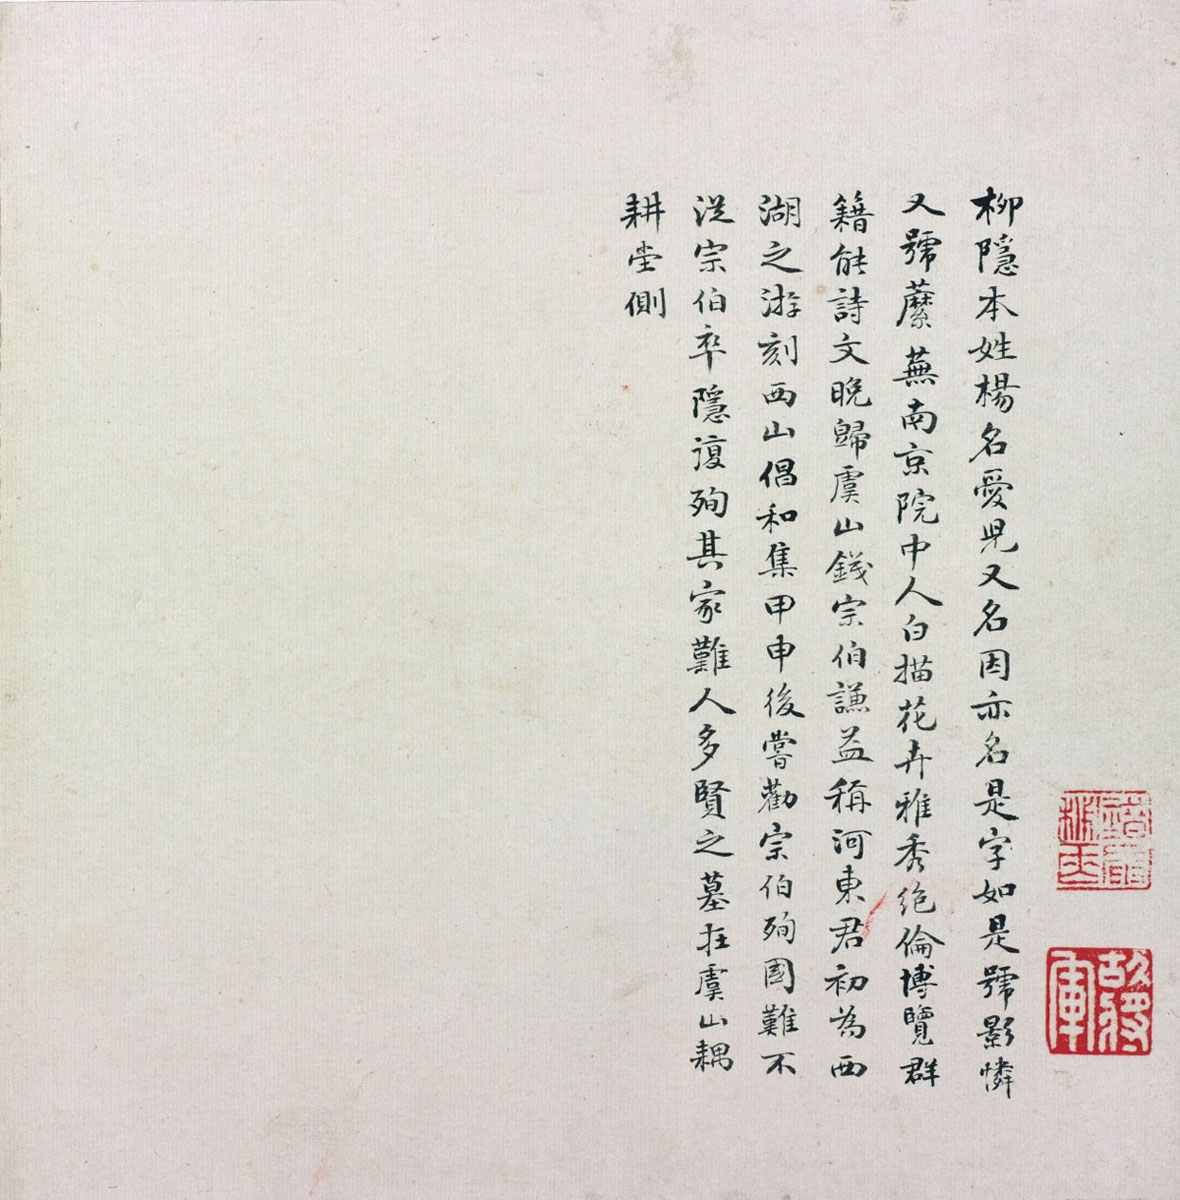 柳隱本姓楊名愛児又名因亦名是字如是號影憐
又號蘼蕪南京院中人白描花卉雅秀绝倫博覽群
籍能詩文晚歸虞山錢宗伯謙益稱河東君初為西
湖之游刻西山倡和集甲申後嘗勸宗伯殉國難不
従宗伯卒隱復殉其家難人多賢之墓在虞山耦
耕堂側
故將軍